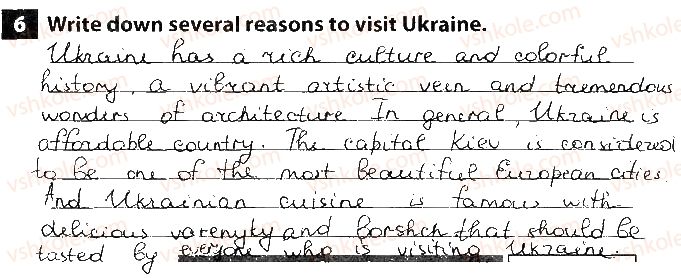 6 Write down several reasons to visit Ukraine.
Ukraine has a rich culture and colorful
history, a vibrant artistic vein and tremendous
wonders of architecture. In general, Ukraine is
affordable country. The capital Kiev is considered
to be one of the most beautiful European cities.
And Ukrainian cuisine is famous with
delicious varenyky and borshch that should be
tasted by everyone who is visiting Ukraine.